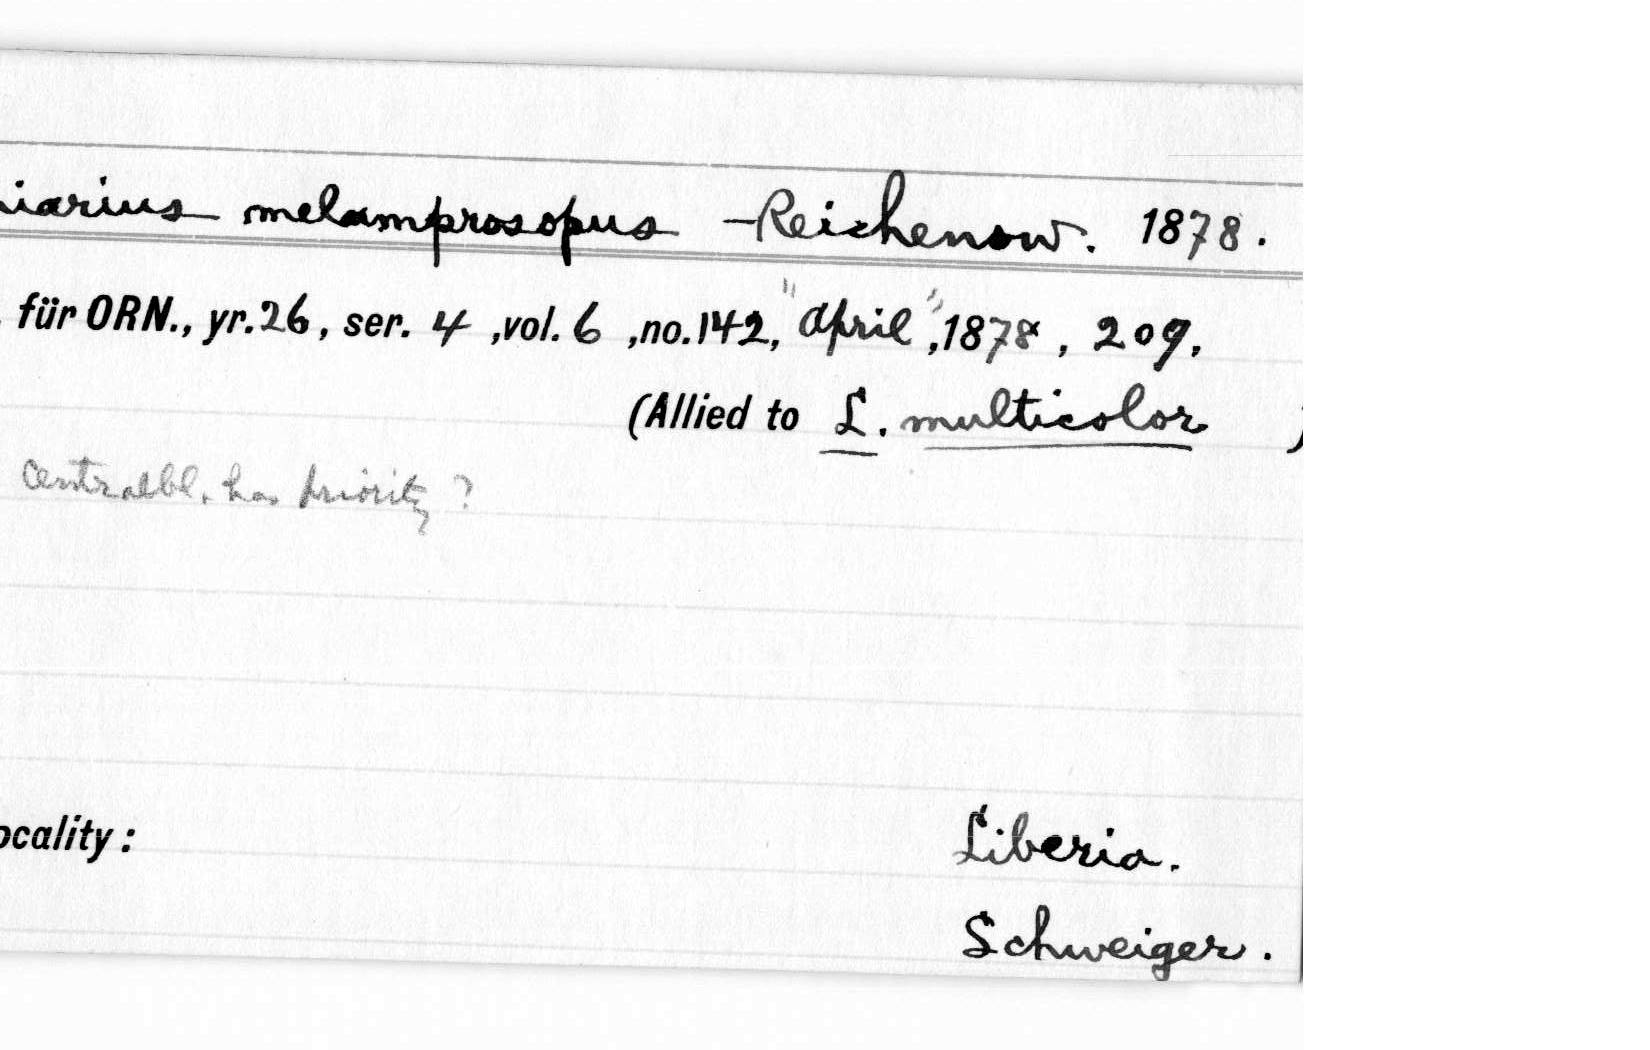 iarius melamprosopus - Reichenow. 1878.
für ORN., yr. 26, ser. 4, vol. 6, no. 142, "April", 1878, 209.
(Allied to L. multicolor )
Centralbl. has priority?
ocality: Liberia.
Schweiger.